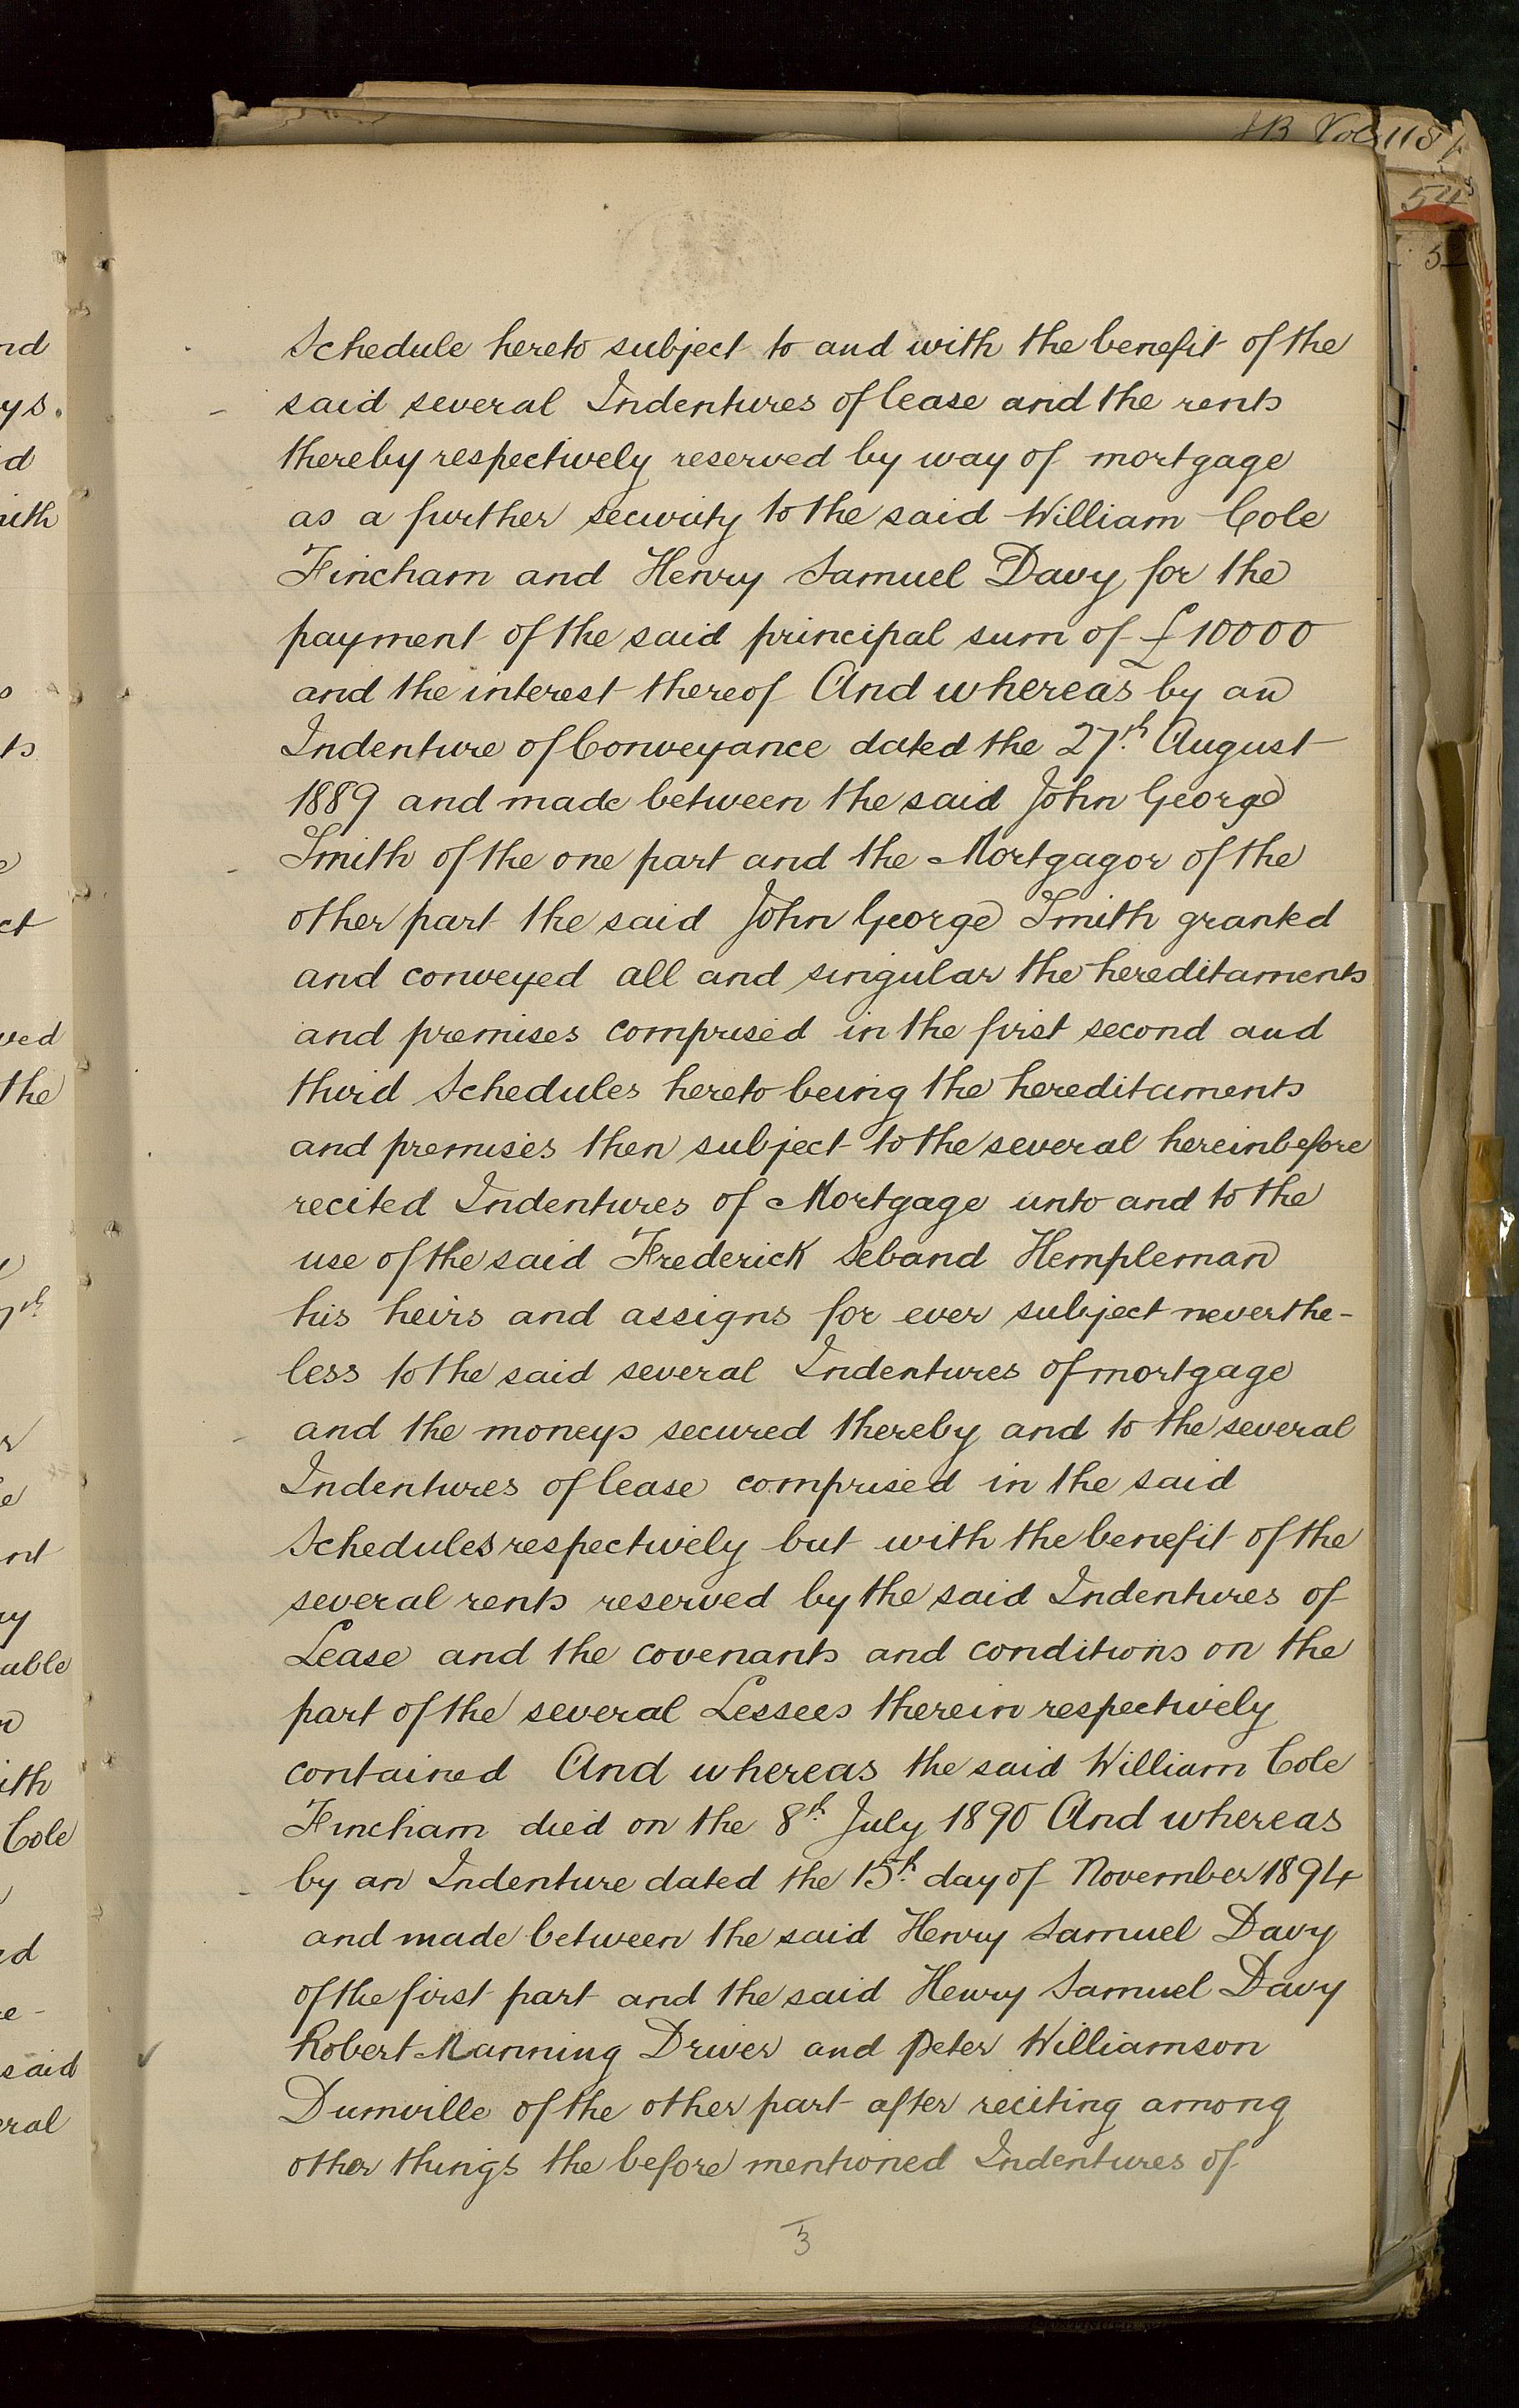 JB Vol 118
54
Schedule hereto subject to and with the benefit of the
said several Indentures of lease and the rents
thereby respectively reserved by way of mortgage
as a further security to the said William Cole
Fincham and Henry Samuel Davy for the
payment of the said principal sum of £10000
and the interest thereof And whereas by an
Indenture of Conveyance dated the 27th August
1889 and made between the said John George
Smith of the one part and the Mortgagor of the
other part the said John George Smith granted
and conveyed all and singular the hereditaments
and premises comprised in the first second and
third Schedules hereto being the hereditaments
and premises then subject to the several hereinbefore
recited Indentures of Mortgage unto and to the
use of the said Frederick Seband Hempleman
his heirs and assigns for ever subject neverthe-
less to the said several Indentures of mortgage
and the moneys secured thereby and to the several
Indentures of lease comprised in the said
Schedules respectively but with the benefit of the
several rents reserved by the said Indentures of
Lease and the covenants and conditions on the
part of the several Lessees therein respectively
contained And whereas the said William Cole
Fincham died on the 8th July 1890 And whereas
by an Indenture dated the 15th day of November 1894
and made between the said Henry Samuel Davy
of the first part and the said Henry Samuel Davy
Robert Manning Driver and Peter Williamson
Dumville of the other part after reciting among
other things the before mentioned Indentures of
3